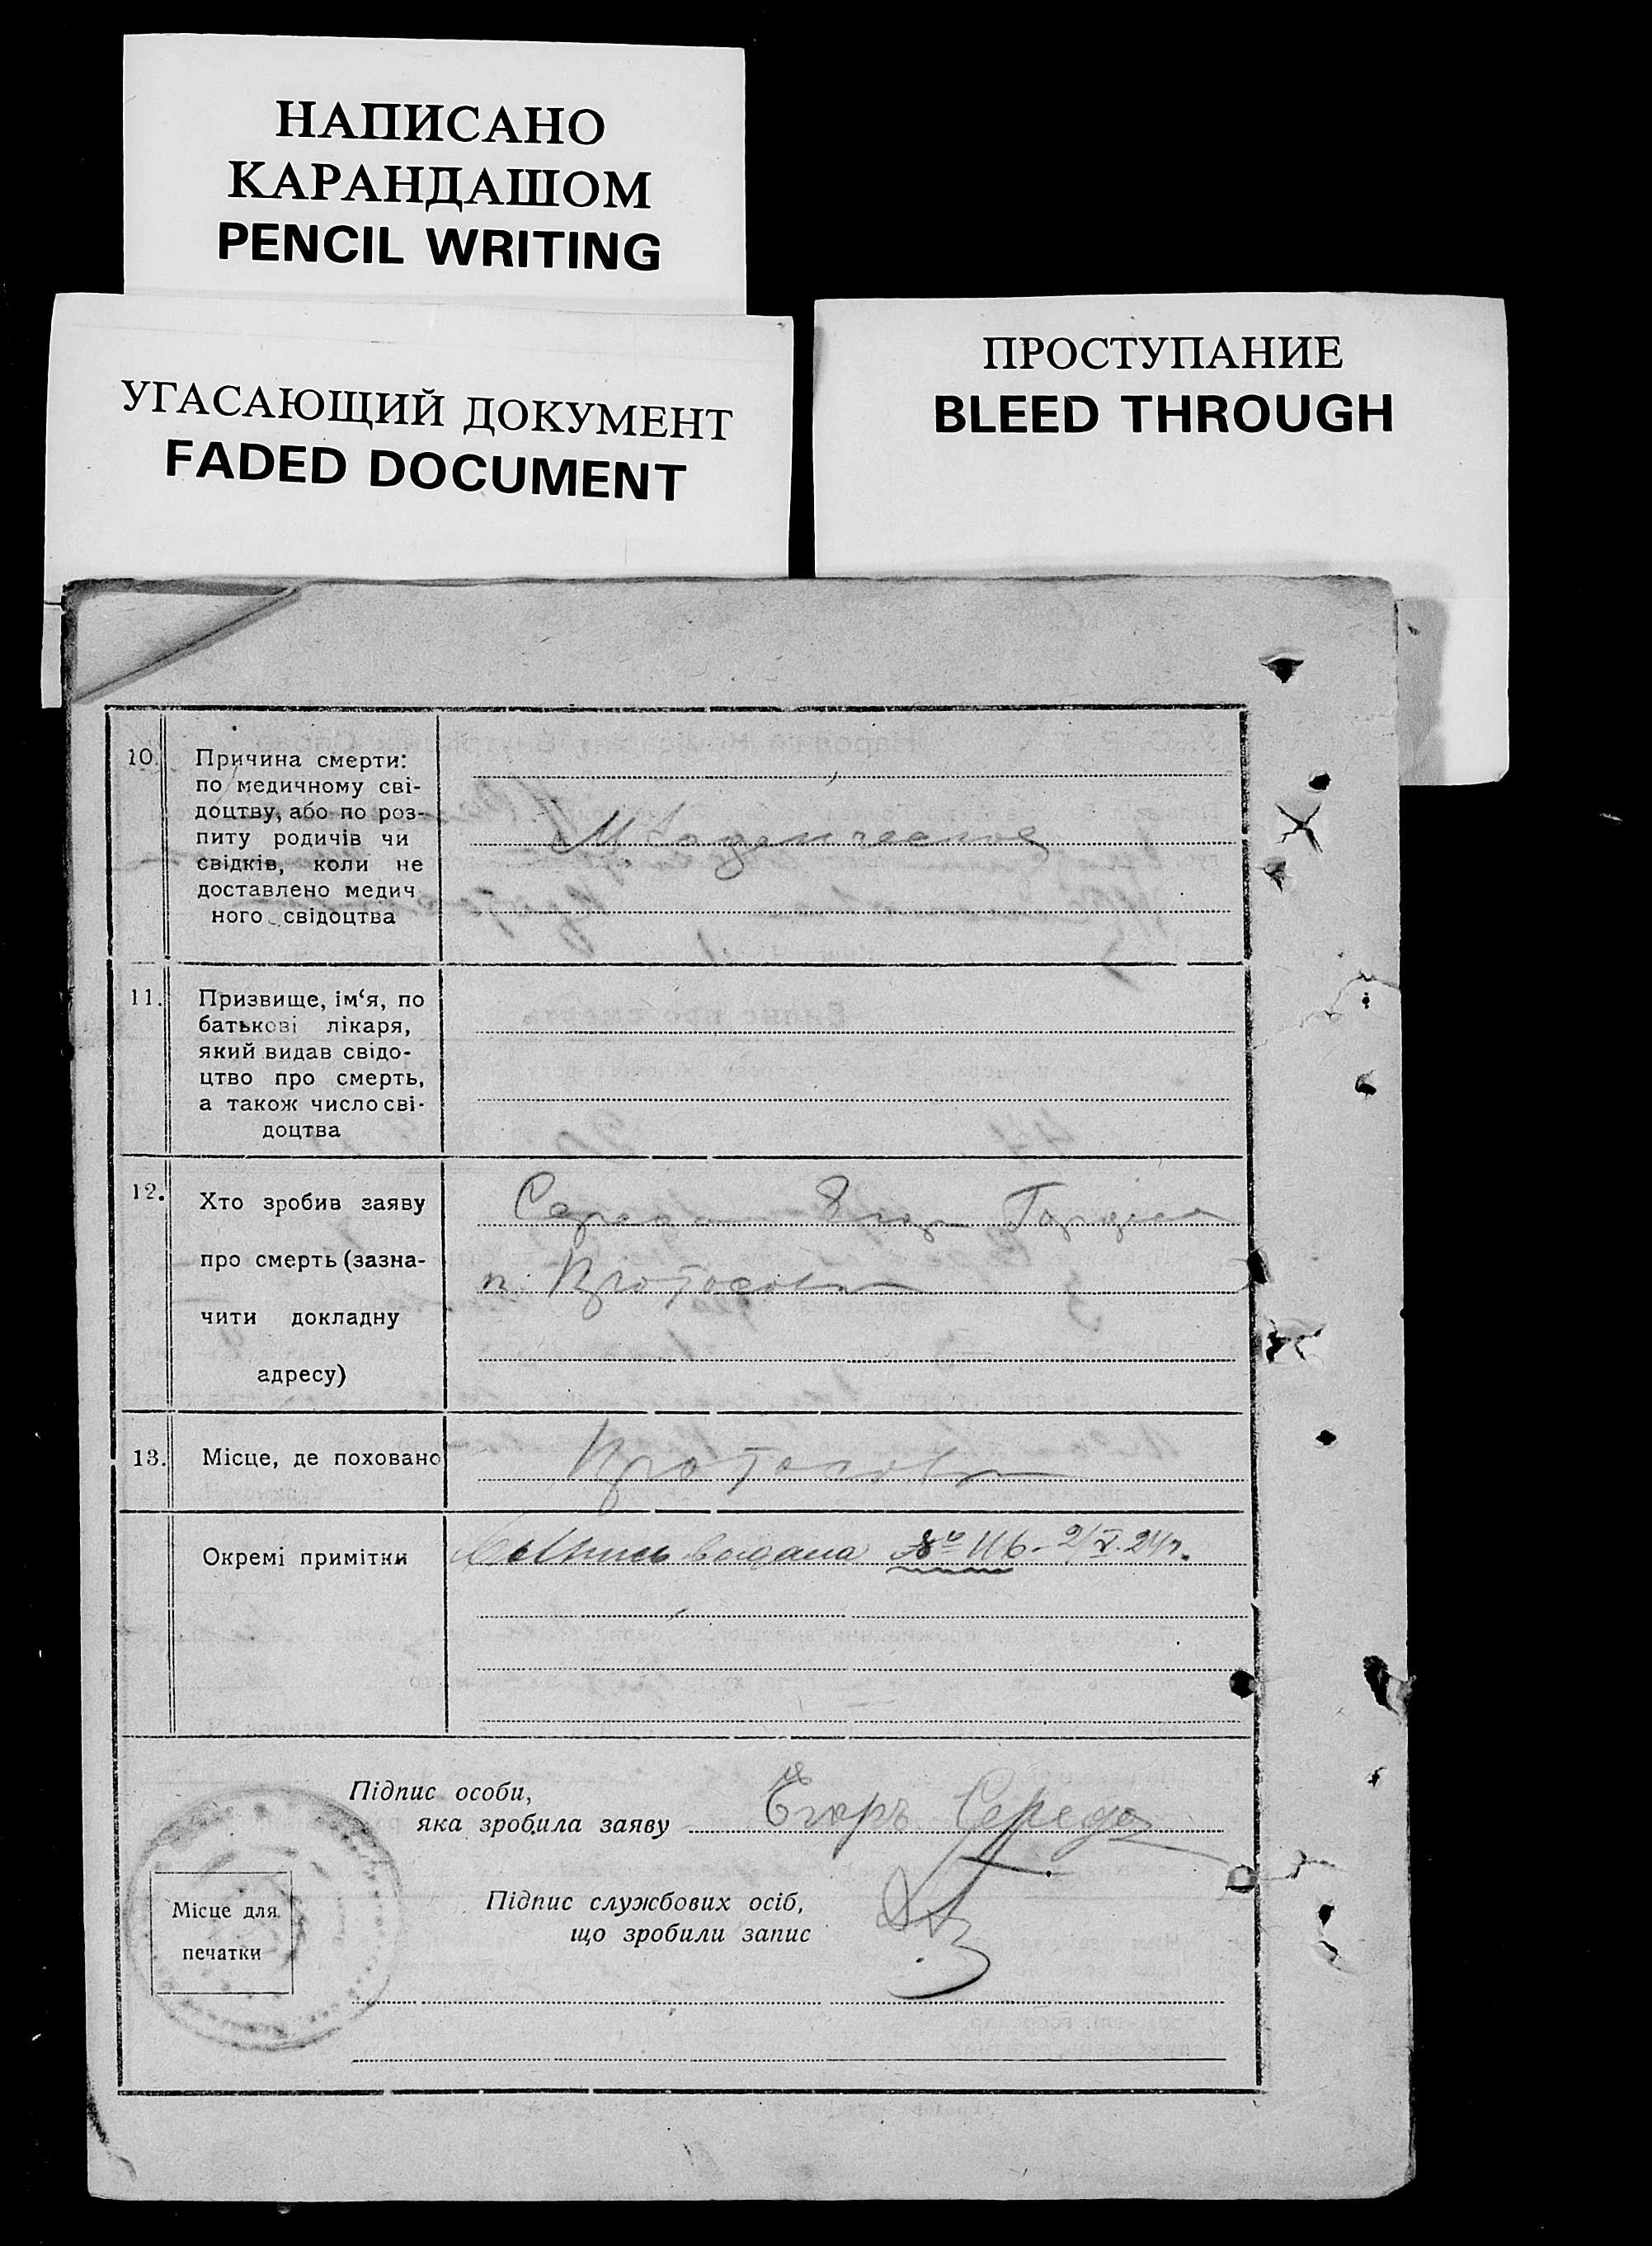 НАПИСАНО
КАРАНДАШОМ
PENCIL WRITING
УГАСАЮЩИЙ ДОКУМЕНТ
FADED DOCUMENT
ПРОСТУПАНИЕ
BLEED THROUGH
10.
Причина смерти:
по медичному сві-
доцтву, або по роз-
питу родичів чи
свідків, коли не
доставлено медич
ного свідоцтва
11.
Призвище, ім‘я, по
батькові лікаря,
який видав свідо-
цтво про смерть,
а також число сві-
доцтва
12.
Хто зробив заяву
про смерть (зазна-
чити докладну
адресу)
Середа Егор
13.
Місце, де поховано
Окремі примітки
выдана № 116
Підпис особи,
яка зробила заяву
Егоръ Середа
Підпис службових осіб,
що зробили запис
Місце для
печатки